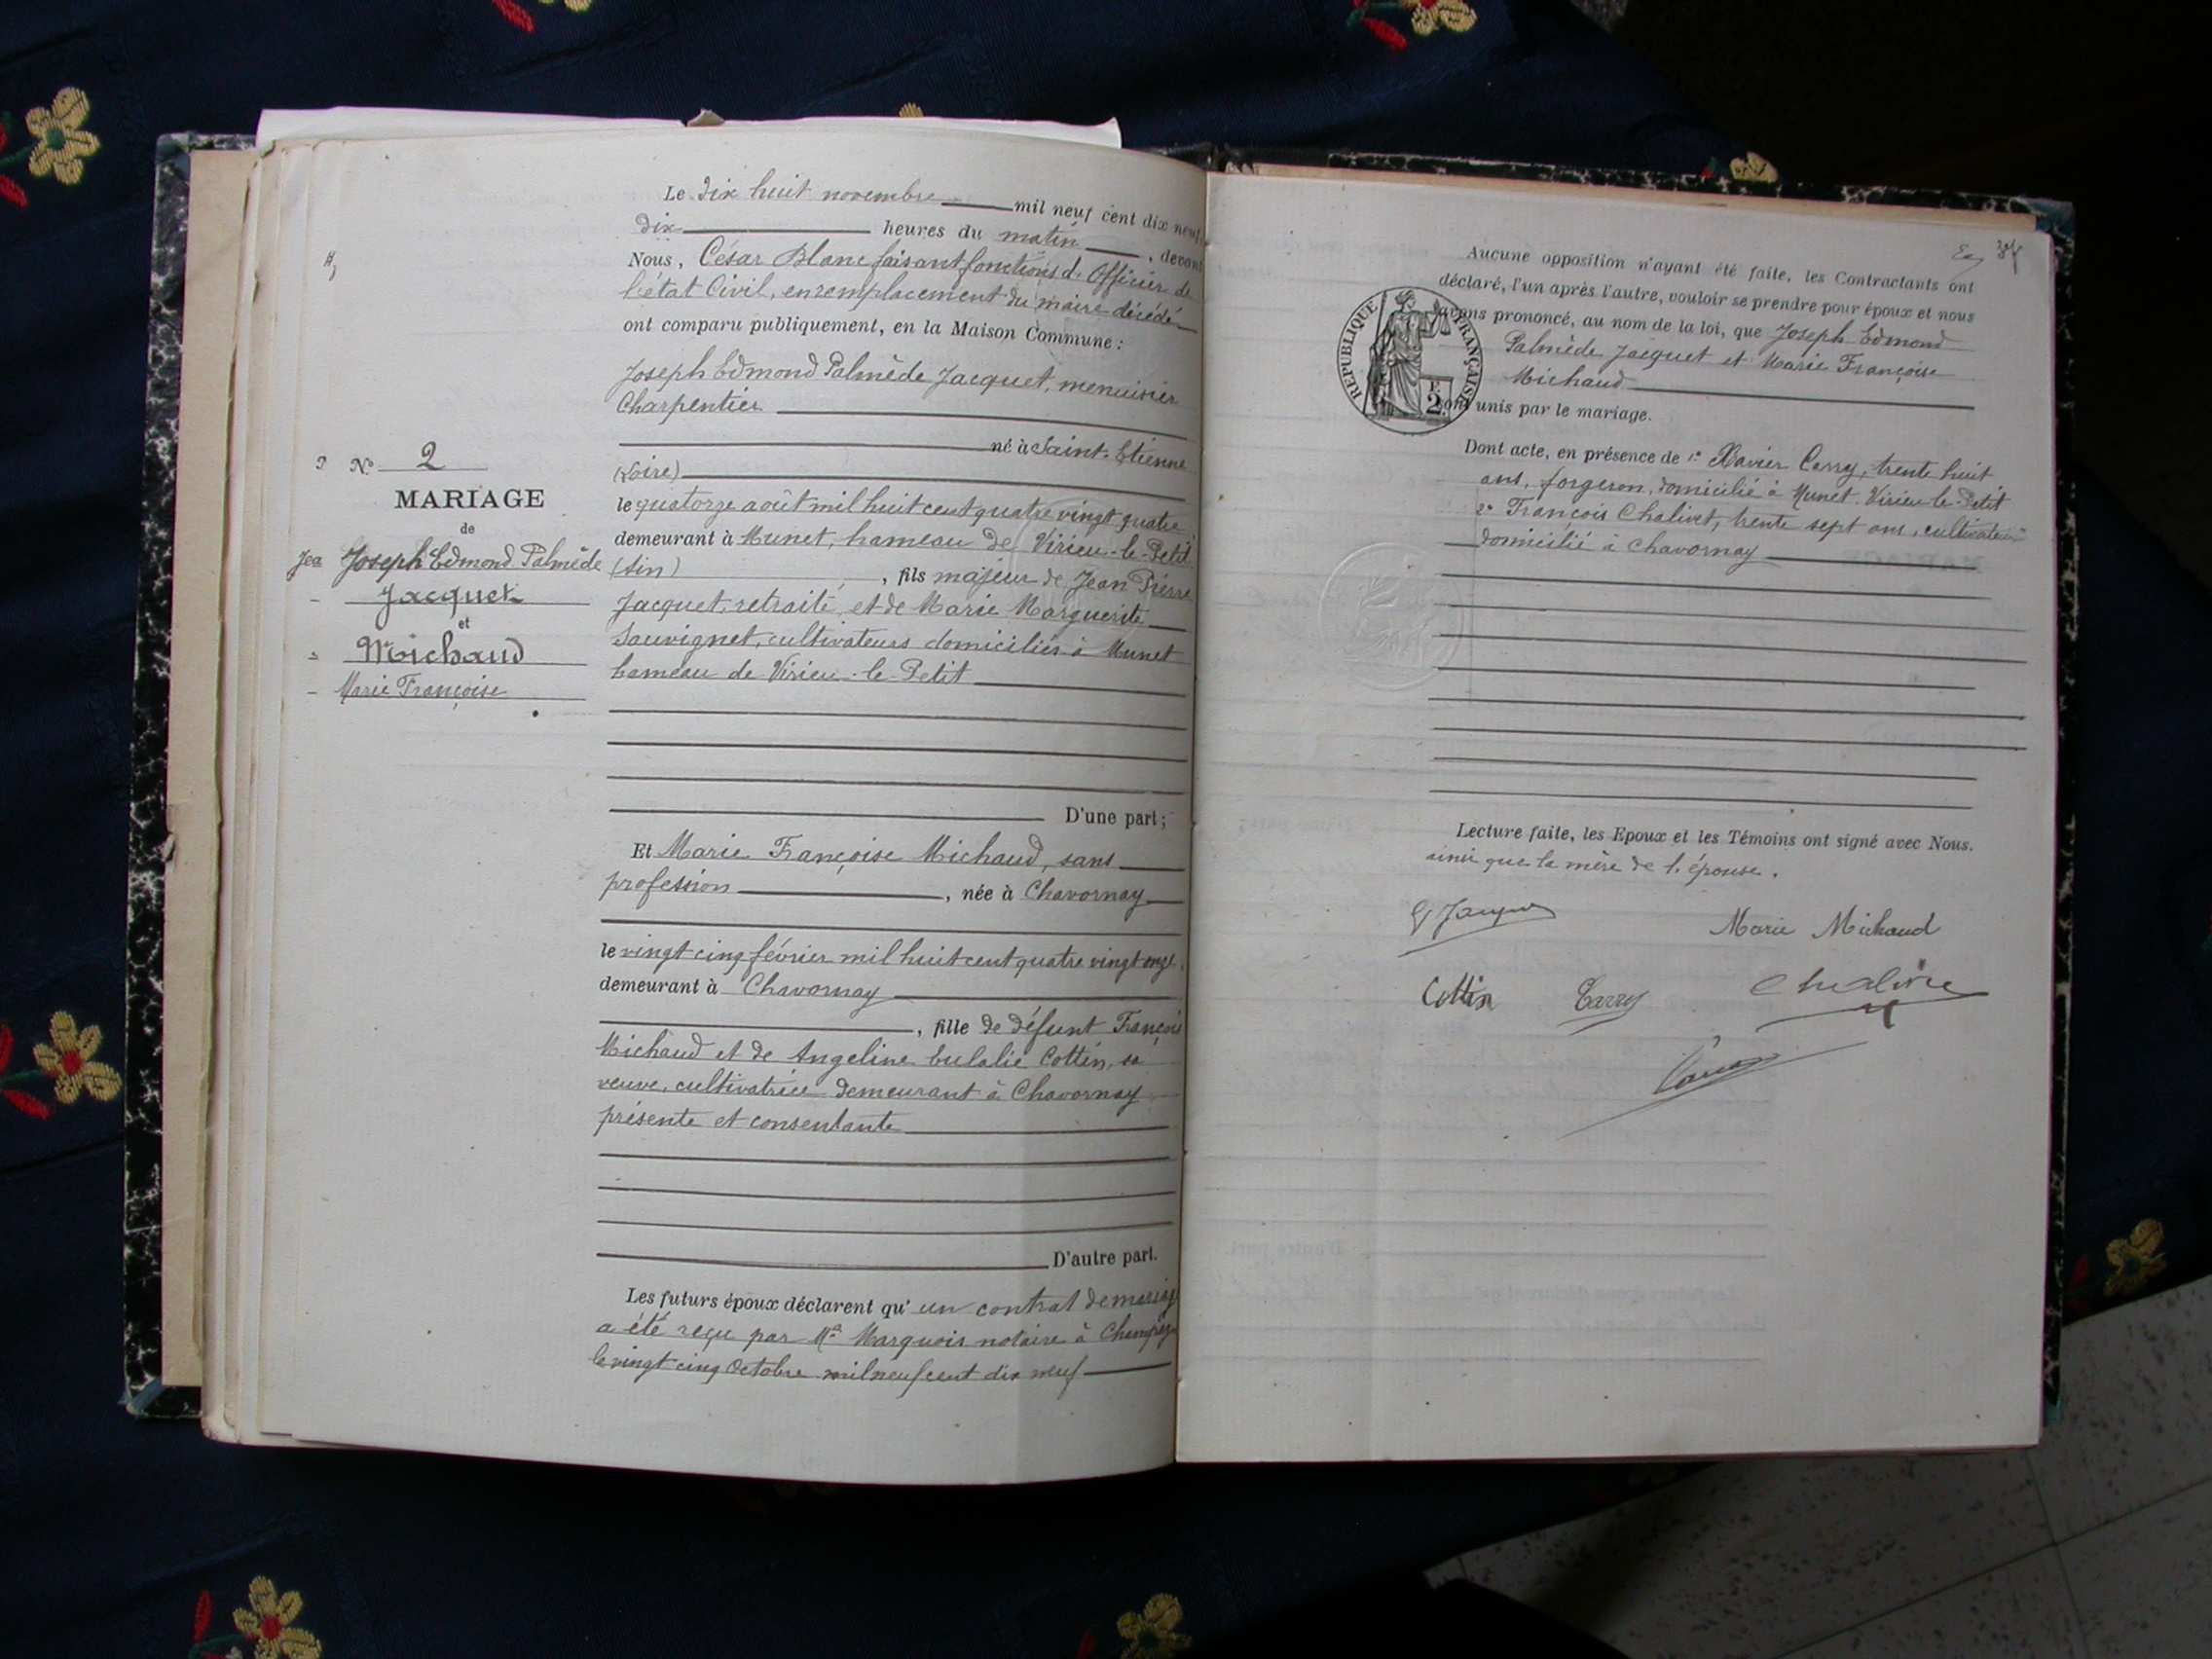 N° 2
MARIAGE
de
Joseph Edmond Palmède
Jacquet
et
Michaud
Marie Françoise
Le dix huit novembre mil neuf cent dix neuf
dix heures du matin, devant
Nous, César Blanc faisant fonctions d' Officier de
l'état Civil, en remplacement du maire décédé
ont comparu publiquement, en la Maison Commune :
Joseph Edmond Palmède Jacquet, menuisier
Charpentier
né à Saint-Etienne
(Loire)
le quatorze août mil huit cent quatre vingt quatre
demeurant à Munet, hameau de Virieu-le-Petit
(Ain), fils majeur de Jean Pierre
Jacquet, retraité, et de Marie Marguerite
Sauvignet, cultivateurs domiciliés à Munet
hameau de Virieu-le-Petit
D'une part ;
Et Marie Françoise Michaud, sans
profession, née à Chavornay
le vingt cinq février mil huit cent quatre vingt onze,
demeurant à Chavornay
, fille de défunt François
Michaud et de Angeline Eulalie Cottin, sa
veuve, cultivatrice demeurant à Chavornay
présente et consentante
D'autre part.
Les futurs époux déclarent qu' un contrat de mariage
a été reçu par Me Marquois notaire à
le vingt cinq Octobre mil neuf cent dix neuf
Aucune opposition n'ayant été faite, les Contractants ont
déclaré, l'un après l'autre, vouloir se prendre pour époux et nous
avons prononcé, au nom de la loi, que Joseph Edmond
Palmède Jacquet et Marie Françoise
Michaud
sont unis par le mariage.
RÉPUBLIQUE FRANÇAISE
2
Dont acte, en présence de 1° Xavier Carry, trente huit
ans, forgeron, domicilié à Munet. Virieu-le-Petit
2° François Chalivet, trente sept ans, cultivateur
domicilié à Chavornay
Lecture faite, les Epoux et les Témoins ont signé avec Nous.
ainsi que la mère de l'épouse.
Jacquet
Marie Michaud
Cottin Carry